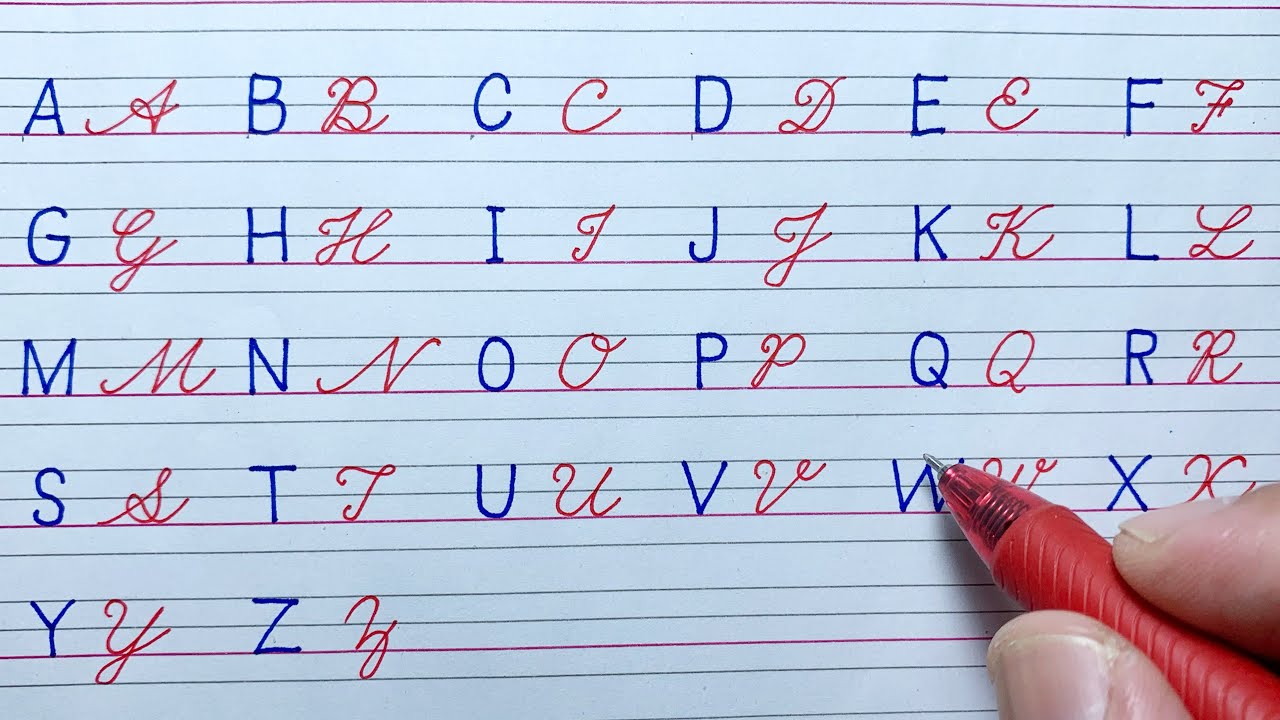 A A B B C C D D E E F F
G G H H I I J J K K L L
M M N N O O P P Q Q R R
S S T T U U V V W W X X
Y Y Z Z